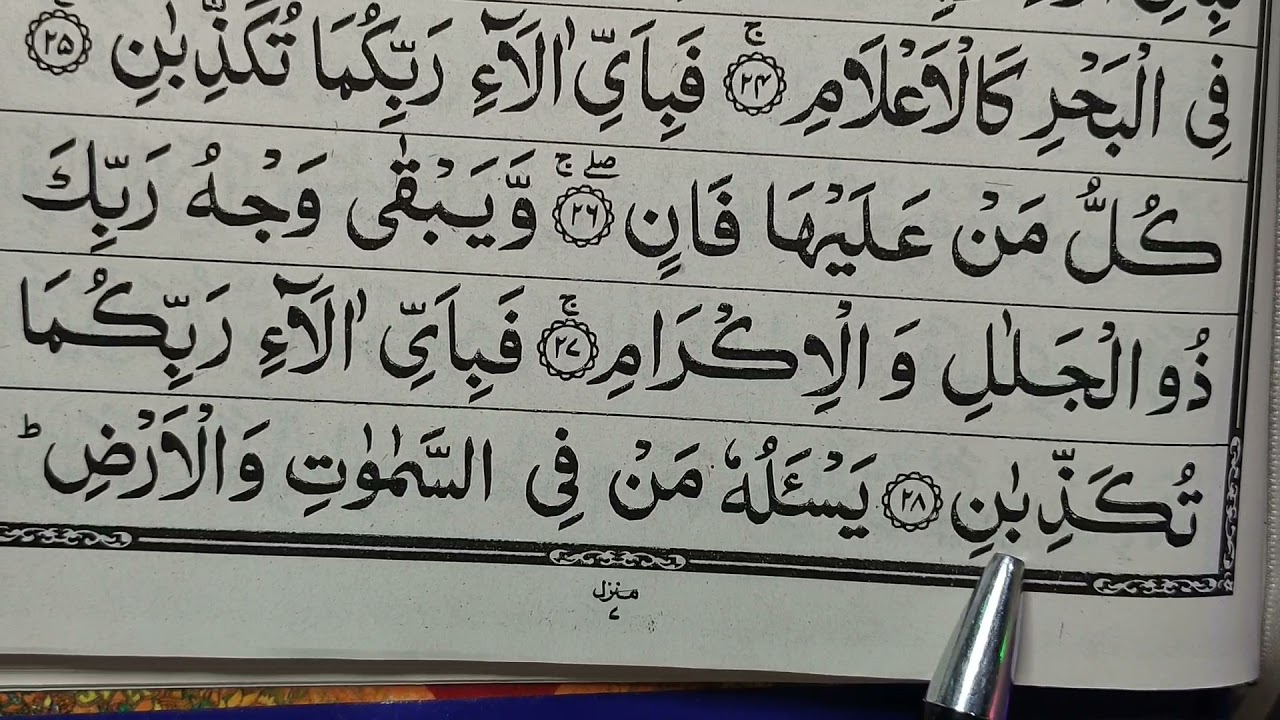 فِی الْبَحْرِ كَالْاَعْلَامِ ۚ‏﴿۲۴﴾ فَبِاَیِّ اٰلَآءِ رَبِّكُمَا تُكَذِّبٰنِ ﴿۲۵﴾
كُلُّ مَنْ عَلَیْهَا فَانٍ ۖۚ‏﴿۲۶﴾ وَّیَبْقٰی وَجْهُ رَبِّكَ
ذُو الْجَلٰلِ وَ الْاِكْرَامِ ۚ‏﴿۲۷﴾ فَبِاَیِّ اٰلَآءِ رَبِّكُمَا
تُكَذِّبٰنِ ﴿۲۸﴾ یَسْـَٔلُهٗ مَنْ فِی السَّمٰوٰتِ وَالْاَرْضِ ؕ
منزل
۷